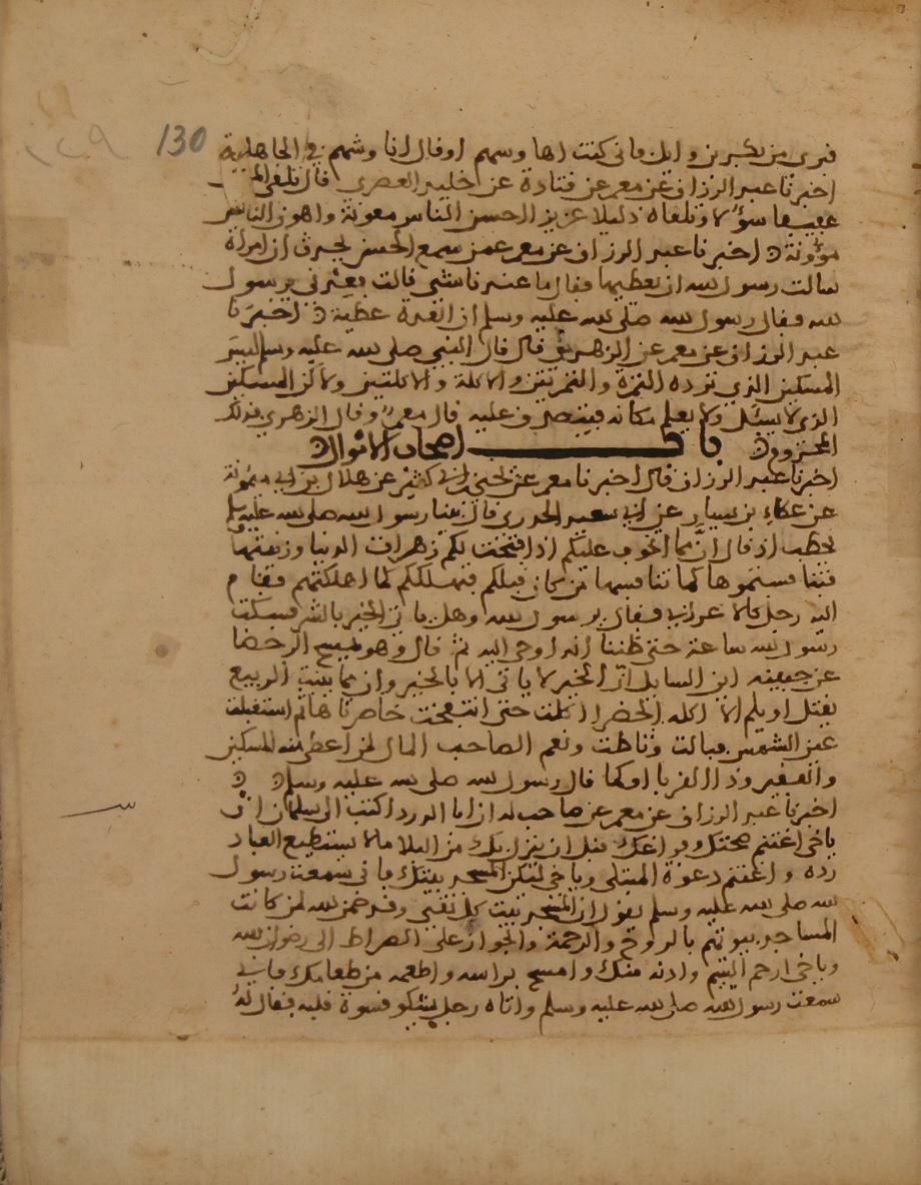 130
فترى من بكر بن وايل فانى كنت اها وسهم او قال انا وشهم في الجاهلية
اخبرنا عبد الرزاق عن معمر عن قتادة عن خليد العصري قال تلقى المؤمن
عفيفا سؤلا وتلقاه ذليلا عزيزا احسن الناس معونة واهون الناس
مؤونة اخبرنا عبد الرزاق عن معمر عمن سمع الحسن يحدث ان امراة
سالت رسول الله ان يعطيها فقال ما عندنا شي قالت فعدني يرسول
الله فقال رسول الله صلى الله عليه وسلم ان العدة عطية اخبرنا
عبد الرزاق عن معمر عن الزهري قال قال النبي صلى الله عليه وسلم ليس
المسكين الذي ترده التمرة والتمرتين والاكلة والاكلتين ولاكن المسكين
الذي لا يسئل ولا يعلم مكانه فيتصدق عليه قال معمر وقال الزهري فذلك
المحروم باب اصحاب الاموال
اخبرنا عبد الرزاق قال اخبرنا معمر عن يحيى بن ابي كثير عن هلال بن ابي ميمونة
عن عطاء بن يسار عن ابي سعيد الخدري قال بينا رسول الله صلى الله عليه وسلم
يخطب اذ قال انما اخوف عليكم اذا فتحت لكم زهرات الدنيا وزينتها
فتنافستموها كما تنافسها من كان قبلكم فتهلككم كما اهلكتهم فقام
اليه رجل كالاعرابي فقال يرسول الله وهل ياتي الخير بالشر فسكت
رسول الله ساعة حتى ظننا انه اوحي اليه ثم قال وهو يمسح الرحضا
عن جبينه اين السايل ان الخير لا ياتى الا بالخير وان مما ينبت الربيع
يقتل او يلم الا اكلة الخضر اكلت حتى انتفخت خاصرتاها ثم استقبلت
عين الشمس فبالت وثلطت ونعم الصاحب المال لمن اعطى منه المسكين
والفقير وذا القربا او كما قال رسول الله صلى الله عليه وسلم
اخبرنا عبد الرزاق عن معمر عن صاحب له ان ابا الدردا كتب الى سلمان ان
ياخى اغتنم صحتك وفراغك قبل ان ينزل بك من البلا ما لا يستطيع العباد
رده واغتنم دعوة المبتلى وياخي ليكن المسجد بيتك فاني سمعت رسول
الله صلى الله عليه وسلم يقول ان المسجد بيت كل تقي وقد ضمن الله لمن كانت
المساجد بيوتهم بالروح والرحمة والجواز على الصراط الى رضوان الله
وياخى ارحم اليتيم وادنه منك وامسح براسه واطعمه من طعامك فاني
سمعت رسول الله صلى الله عليه وسلم واتاه رجل يشكو قسوة قلبه فقال له